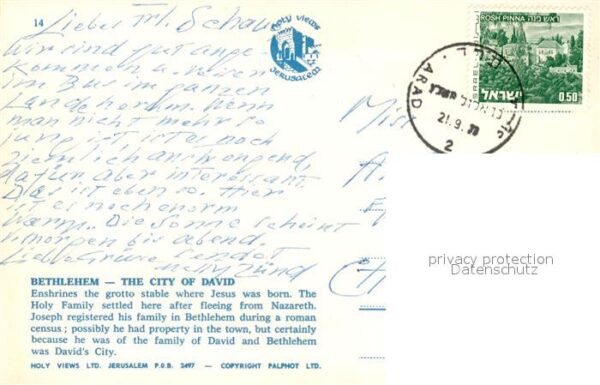 14
Liebes Frl. Schau
Wir sind gut ange-
kommen u. reisen
im Bus im ganzen
Land herum. Wenn
man nicht mehr so
jung ist, ist es noch
ziemlich anstrengend,
dafür aber interessant.
Das ist eben so. Hier
ist es noch enorm
warm. Die Sonne scheint
v. morgen bis abend.
Liebe Grüsse sendet
Nelly Zünd
HOLY VIEWS
JERUSALEM
ROSH PINNA ראש פנה
ISRAEL
ישראל
0.50
ARAD
21.9.
2
BETHLEHEM — THE CITY OF DAVID
Enshrines the grotto stable where Jesus was born. The
Holy Family settled here after fleeing from Nazareth.
Joseph registered his family in Bethlehem during a roman
census ; possibly he had property in the town, but certainly
because he was of the family of David and Bethlehem
was David's City.
HOLY VIEWS LTD. JERUSALEM P.O.B. 2497 — COPYRIGHT PALPHOT LTD.
privacy protection
Datenschutz